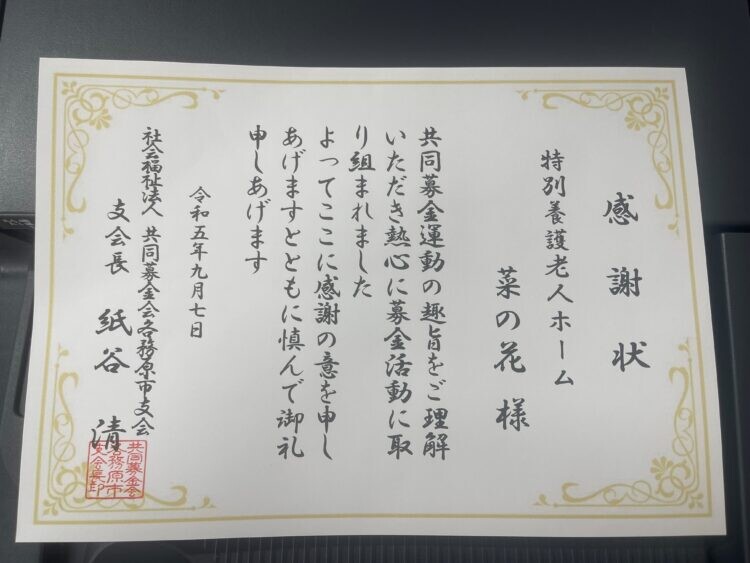 感謝状
特別養護老人ホーム
菜の花 様
共同募金運動の趣旨をご理解
いただき熱心に募金活動に取
り組まれました
よってここに感謝の意を申し
あげますとともに慎んで御礼
申しあげます
令和五年九月七日
社会福祉法人 共同募金会各務原市支会
支会長 紙谷 清
共同募金会
各務原市
支会長印